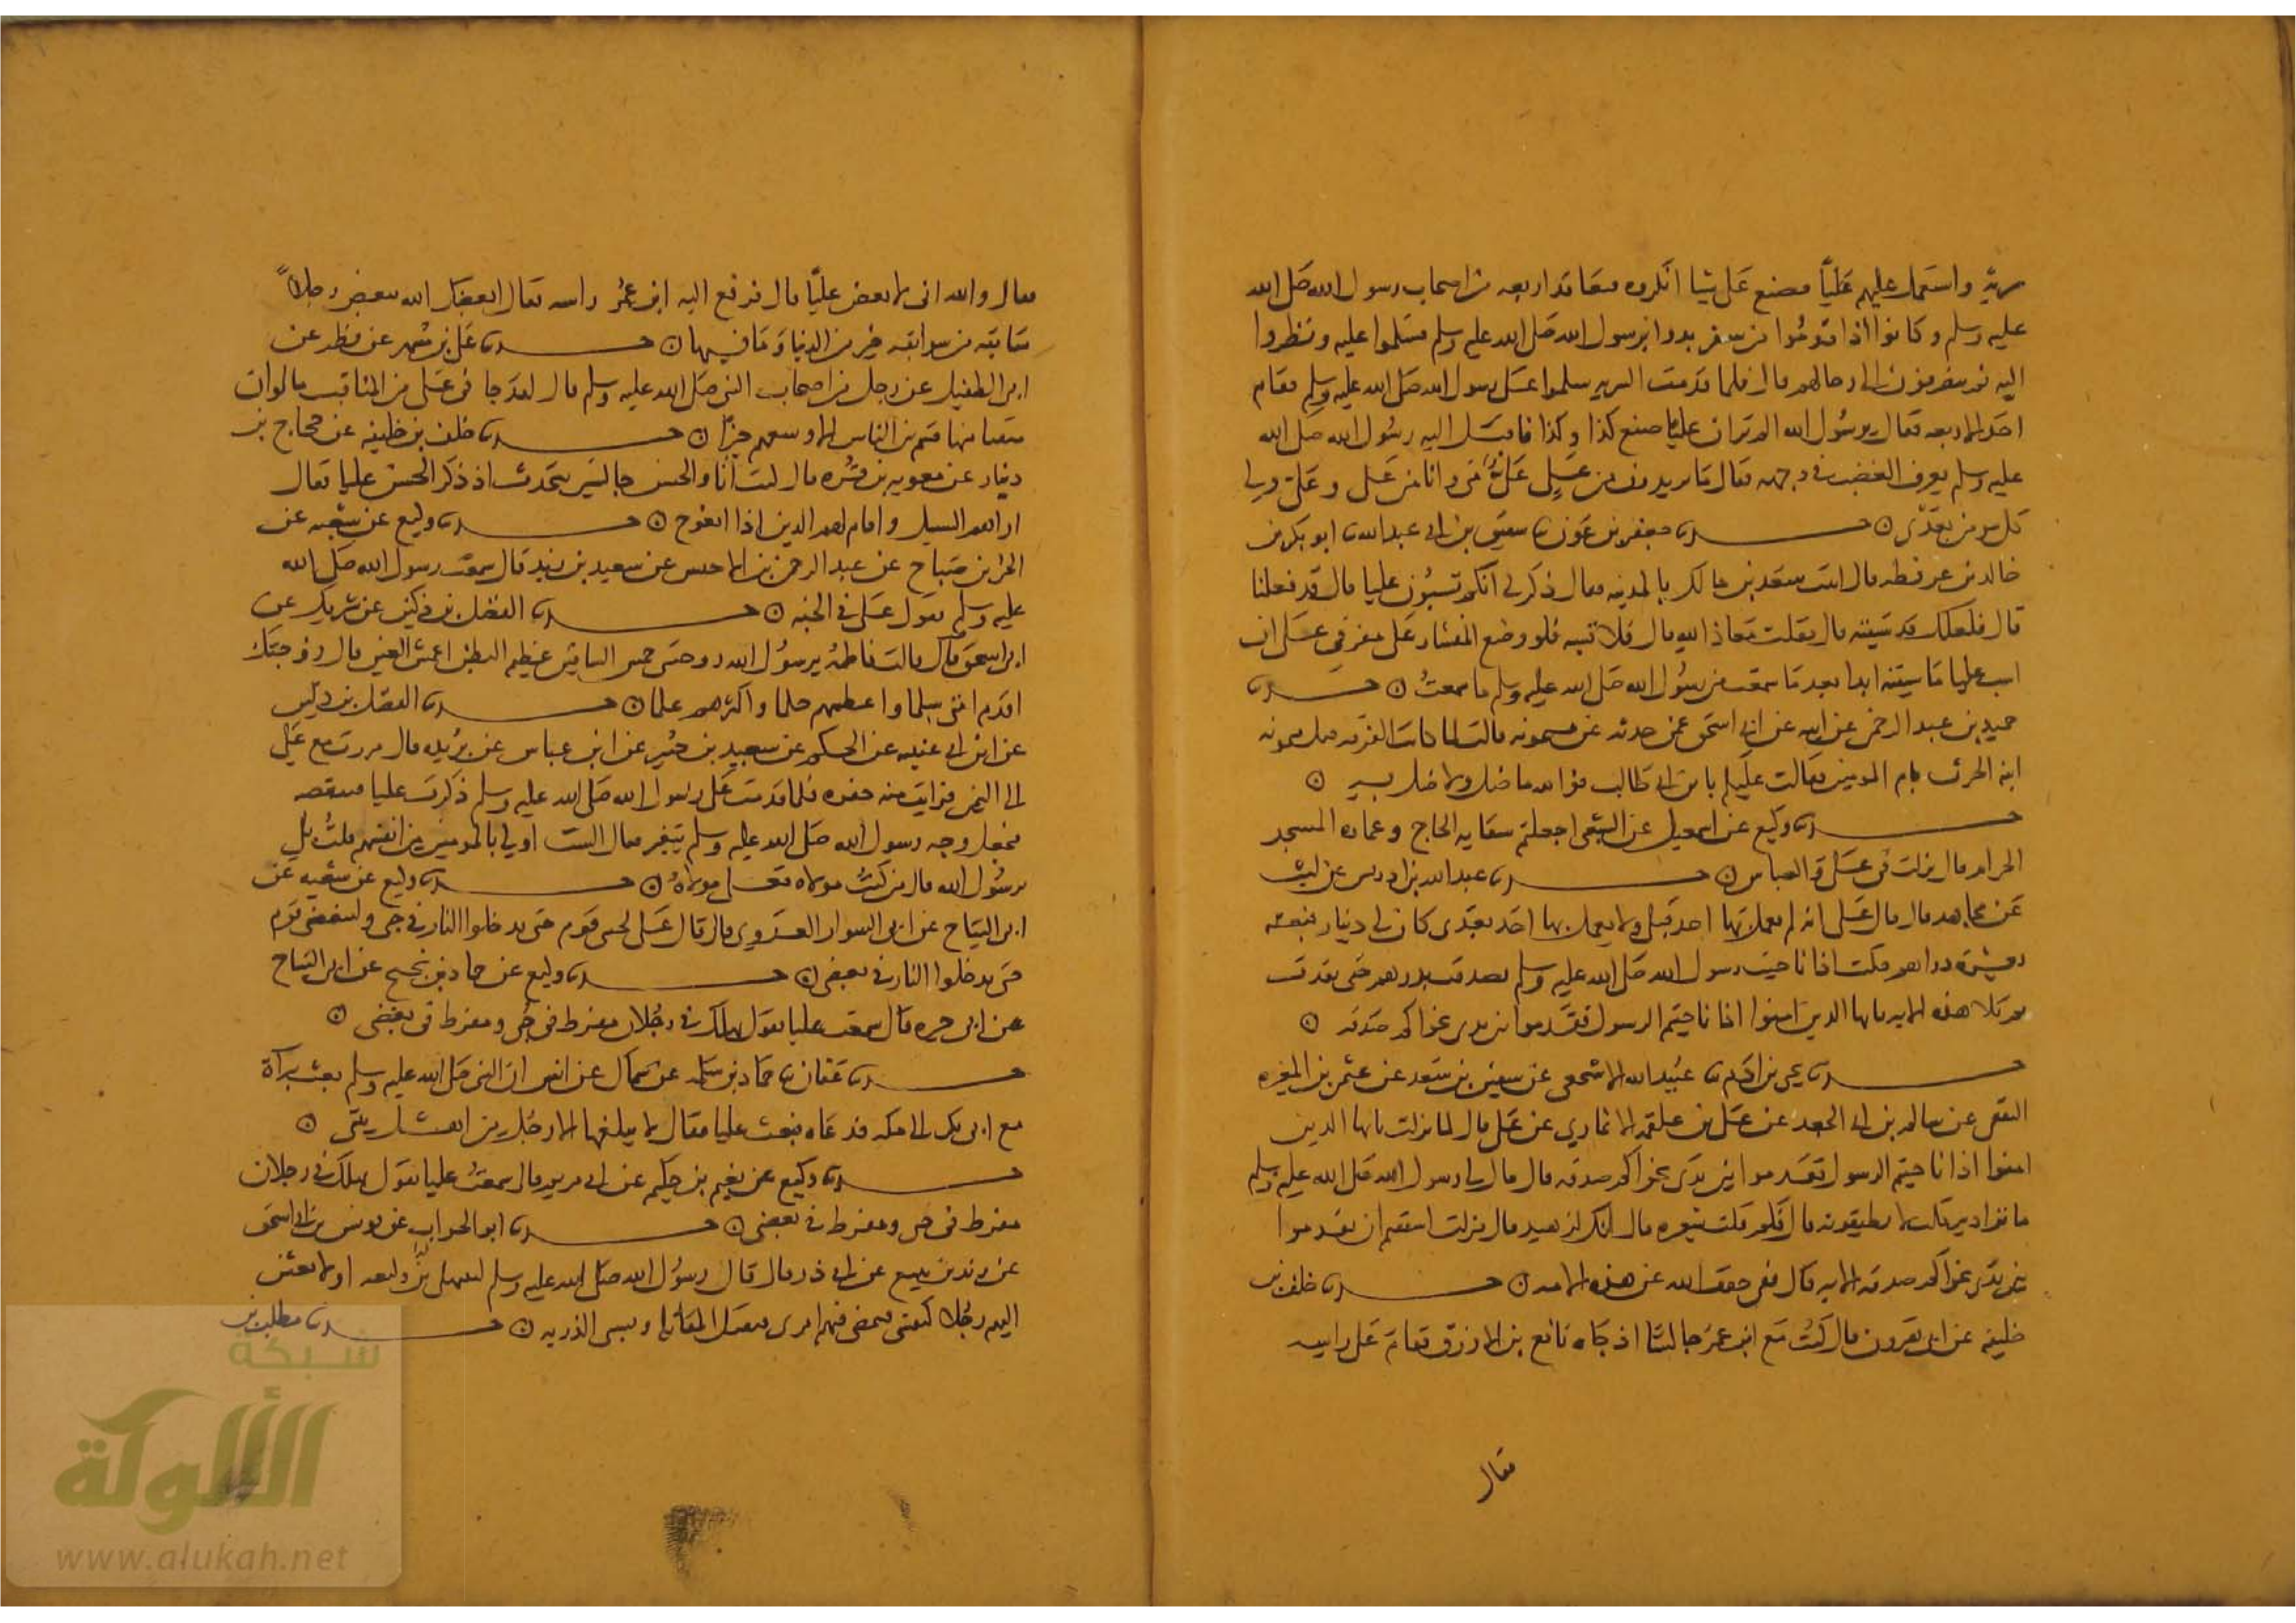 سرية واستعمل عليهم عليًا فصنع على شيا انكروه فتعاقد اربعه من اصحاب رسول الله صلى الله
عليه وسلم وكانوا اذا قدموا من سفر بدوا برسول الله صلى الله عليه وسلم فسلموا عليه ونظروا
اليه ثم ينصرفون الى رحالهم قال فلما قدمت السريه سلموا على رسول الله صلى الله عليه وسلم فقام
احد الاربعه فقال يرسول الله الم تر ان عليا صنع كذا وكذا فاقبل اليه رسول الله صلى الله
عليه وسلم يعرف الغضب في وجهه فقال ما تريدون من علي علي مني وانا من علي وعلي ولي
كل مومن بعدي ○ حدثنا جعفر بن عون ثنا سقيق بن ابي عبد الله ثنا ابو بكر بن
خالد بن عرفطه قال اتيت سعد بن مالك بالمدينه فقال ذكر لي انكم تسبون عليا قال قد فعلنا
قال فلعلك قد سببته قال فقلت معاذ الله قال فلا تسبه فلو وضع المنشار على مفرقي على ان
اسب عليا ما سببته ابدا بعد ما سمعت من رسول الله صلى الله عليه وسلم ما سمعت ○ حدثنا
حميد بن عبد الرحمن عن ابيه عن ابي اسحق عمن حدثه عن ميمونه قالت لما كانت الفرقه قيل لميمونه
ابنة الحرث يام المومنين فقالت عليكم بابن ابي طالب فوالله ما ضل ولا ضل به ○
حدثنا وكيع عن اسمعيل عن الشعبي اجعلتم سقايه الحاج وعماره المسجد
الحرام قال نزلت في علي والعباس ○ حدثنا عبد الله بن ادريس عن ليث
عن مجاهد قال قال علي انه لم يعمل بها احد قبلي ولا يعمل بها احد بعدي كان لي دينار فبعته
بعشرة دراهم فكنت اذا ناجيت رسول الله صلى الله عليه وسلم تصدقت بدرهم حتى نفدت
ثم تلا هذه الايه يايها الذين امنوا اذا ناجيتم الرسول فقدموا بين يدي نجواكم صدقه ○
حدثنا يحيى بن ادم ثنا عبيد الله الاشجعي عن سفين بن سعد عن عثمن بن المغيره
الثقفي عن سالم بن ابي الجعد عن علي بن علقمه الانماري عن علي قال لما نزلت يايها الذين
امنوا اذا ناجيتم الرسول فقدموا بين يدي نجواكم صدقه قال قال لي رسول الله صلى الله عليه وسلم
ما ترى دينر قلت لا يطيقونه قال فكم قلت شعيره قال انك لزهيد قال فنزلت اشفقتم ان تقدموا
بين يدي نجواكم صدقه الايه قال فبي خفف الله عن هذه الامه ○ حدثنا خلف بن
خليفه عن ابي هرون قال كنت مع ابن عمر جالسا اذ جاه نافع بن الازرق فقام على راسه
فقال
فقال والله اني لابغض عليًا قال فرفع اليه ابن عمر راسه فقال ابغضك الله تبغض رجلاً
سابقه من سوابقه خير من الدنيا وما فيها ○ حدثنا علي بن مسهر عن فطر عن
ابي الطفيل عن رجل من اصحاب النبي صلى الله عليه وسلم قال لقد جا في علي من المناقب ما لو ان
منقبا منها قسم بين الناس لاوسعهم خيرًا ○ حدثنا خلف بن خليفه عن حجاج بن
دينار عن معويه بن قره قال كنت انا والحسن جالسين نتحدث اذ ذكر الحسن عليا فقال
اراهم السبيل واقام لهم الدين اذا اعوج ○ حدثنا وكيع عن شعبه عن
الحر بن صباح عن عبد الرحمن بن الاخنس عن سعيد بن زيد قال سمعت رسول الله صلى الله
عليه وسلم يقول علي في الجنه ○ حدثنا الفضل بن دكين عن شريك عن
ابي اسحق قال قالت فاطمه يرسول الله زوجتني حمش الساقين عظيم البطن اعمش العين قال زوجتك
اقدم امتي سلما واعظمهم حلما واكثرهم علما ○ حدثنا الفضل بن دكين
عن ابن ابي غنيه عن الحكم عن سعيد بن جبير عن ابن عباس عن بريده قال مررت مع علي
الى اليمن فرايت منه جفوه فلما قدمت على رسول الله صلى الله عليه وسلم ذكرت عليا فتنقصته
فجعل وجه رسول الله صلى الله عليه وسلم يتغير فقال الست اولي بالمومنين من انفسهم قلت بلي
يرسول الله قال من كنت مولاه فعلي مولاه ○ حدثنا وكيع عن شعبه عن
ابي التياح عن ابي السوار العدوي قال قال علي ليحبني قوم حتى يدخلوا النار في حبي وليبغضني قوم
حتى يدخلوا النار في بغضي ○ حدثنا وكيع عن حماد بن نجيح عن ابي التياح
عن ابي حبره قال سمعت عليا يقول يهلك في رجلان مفرط في حبي ومفرط في بغضي ○
حدثنا عفان ثنا حماد بن سلمه عن سماك عن انس ان النبي صلى الله عليه وسلم بعث ببراة
مع ابي بكر الى مكه فدعاه فبعث عليا فقال لا يبلغها الا رجل من اهل بيتي ○
حدثنا وكيع عن نعيم بن حكيم عن ابي مريم قال سمعت عليا يقول يهلك في رجلان
مفرط في حبي ومفرط في بغضي ○ حدثنا ابو الجواب عن يونس بن ابي اسحق
عن زيد بن يثيع عن ابي ذر قال قال رسول الله صلى الله عليه وسلم لينتهين بنو وليعه او لابعثن
اليهم رجلا كنفسي فيمضي فيهم امري فيقتل المقاتله ويسبي الذريه ○ حدثنا مطلب بن
شبكة
الألوكة
www.alukah.net